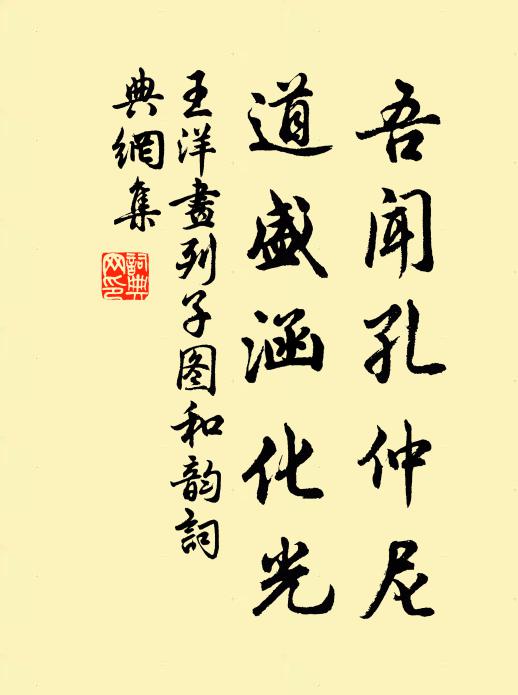 吾闻孔仲尼
道盛涵化光
王洋画列子图和韵词
典網集
詞典网印